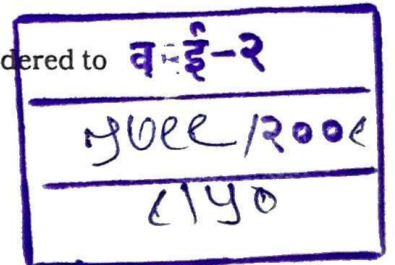 dered to व-ई-२
५७९९/२००८
८/५०